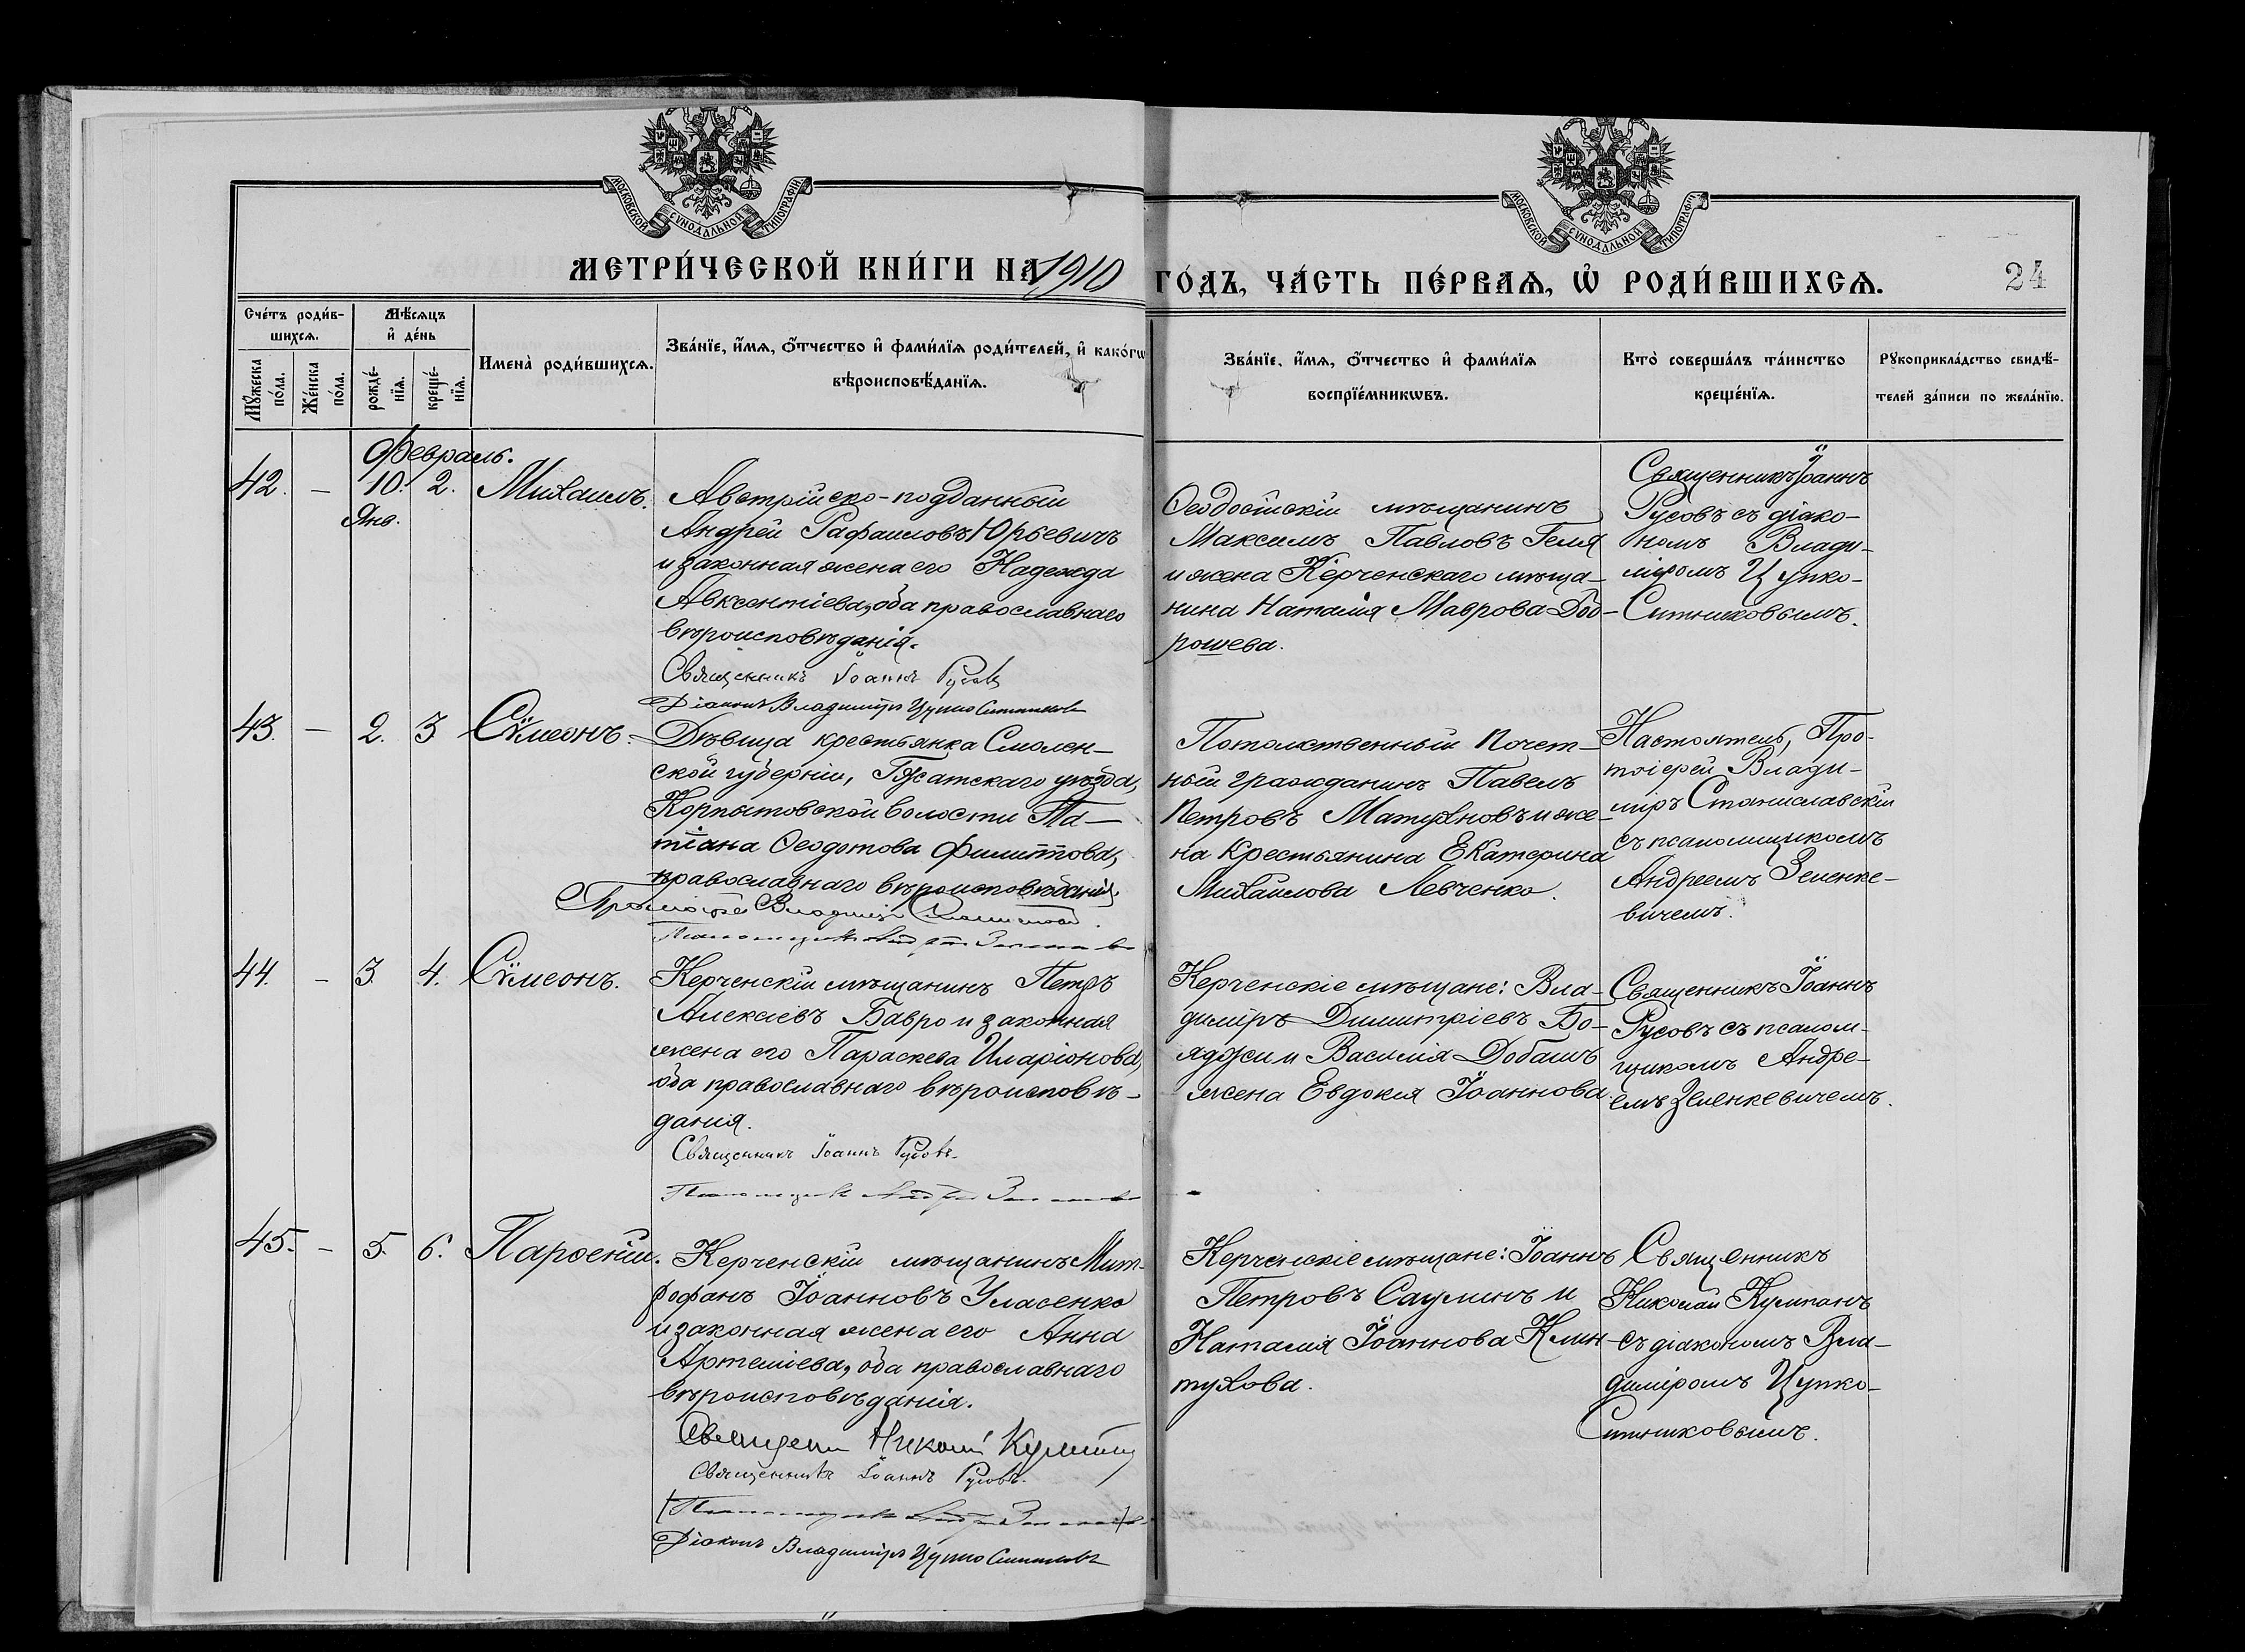 МОСКОВСКОЙ СУНОДАЛЬНОЙ ТИПОГРАФІИ.
МОСКОВСКОЙ СУНОДАЛЬНОЙ ТИПОГРАФІИ.
МЕТРИ́ЧЕСКОЙ КНИ́ГИ НА 1910
ГО́ДЪ, ЧА́СТЬ ПЕ́РВАѦ, Ѡ҆ РОДИ́ВШИХСѦ.
24
Сче́тъ роди́в-
шихсѧ.
Мѣ́сѧцъ
и҆ де́нь
Мꙋ́жеска
по́ла.
Же́нска
по́ла.
рожде́-
нїѧ.
креще́-
нїѧ.
Имена̀ роди́вшихсѧ.
Зва́нїе, и҆́мѧ, ѻ҆́тчество и҆ фами́лїѧ роди́телей, и҆ како́гѡ
вѣроисповѣ́данїѧ.
Зва́нїе, и҆́мѧ, ѻ҆́тчество и҆ фами́лїѧ
воспрїе́мникѡвъ.
Кто̀ соверша́лъ та́инство
креще́нїѧ.
Рꙋкоприкла́дство свидѣ́-
телей за́писи по жела́нїю.
Февраль.
42. — 10. 2. Михаилъ.
Янв.
Австрійско-подданный
Андрей Рафаиловъ Юрьевичъ
и законная жена его Надежда
Авксентіева, оба православнаго
вѣроисповѣданія.
Священникъ Іоаннъ Русовъ
Діаконъ Владиміръ Цупко Ситниковъ
Ѳеодосійскій мѣщанинъ
Максимъ Павловъ Геля
и жена Керченскаго мѣща-
нина Наталія Маврова Доо-
рошева.
Священникъ Іоаннъ
Русовъ съ діако-
номъ Влади-
міромъ Цупко-
Ситниковымъ.
43. — 2. 3 Сѵмеонъ.
Дѣвица крестьянка Смолен-
ской губерніи, Гжатскаго уѣзда,
Корпытовской волости Та-
тіана Ѳеодотова Филиппова,
православнаго вѣроисповѣданія.
Протоіерей Владиміръ Станиславскій.
Псаломщикъ Андрей Зеленкевичъ
Потомственный почет-
ный гражданинъ Павелъ
Петровъ Матухновъ и же-
на крестьянина Екатерина
Михаилова Левченко.
Настоятель, Про-
тоіерей Влади-
міръ Станиславскій
съ псаломщикомъ
Андреемъ Зеленке-
вичемъ.
44. — 3. 4. Сѵмеонъ.
Керченскій мѣщанинъ Петръ
Алексіевъ Бавро и законная
жена его Параскева Иларіонова,
оба православнаго вѣроисповѣ-
данія.
Священникъ Іоаннъ Русовъ.
Псаломщикъ Андрей Зеленкевичъ
Керченскіе мѣщане: Вла-
диміръ Димитріевъ Бо-
яджи и Василія Добашъ
жена Евдокія Іоаннова.
Священникъ Іоаннъ
Русовъ съ псалом-
щикомъ Андре-
емъ Зеленкевичемъ.
45. — 5. 6. Парѳеній.
Керченскій мѣщанинъ Мит-
рофанъ Іоанновъ Уласенко
и законная жена его Анна
Артеміева, оба православнаго
вѣроисповѣданія.
Священникъ Николай Кумпанъ
Священникъ Іоаннъ Русовъ.
(Псаломщикъ Андрей Зеленкевичъ)
Діаконъ Владиміръ Цупко Ситниковъ
Керченскіе мѣщане: Іоаннъ
Петровъ Саулинъ и
Наталія Іоаннова Клин-
тухова.
Священникъ
Николай Кумпанъ
съ діакономъ Вла-
диміромъ Цупко-
Ситниковымъ.